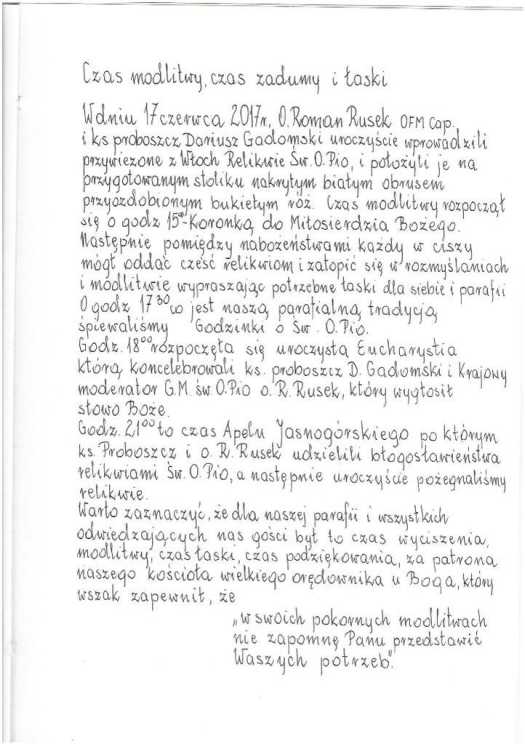 Czas modlitwy, czas zadumy i łaski
W dniu 17 czerwca 2017r, O. Roman Rusek OFM Cap.
i ks proboszcz Dariusz Gadomski uroczyście wprowadzili
przywiezone z Włoch Relikwie Św. O. Pio, i położyli je na
przygotowanym stoliku nakrytym białym obrusem
przyozdobionym bukietym róż. Czas modlitwy rozpoczął
się o godz 15⁰⁰-Koronką do Miłosierdzia Bożego.
Następnie pomiędzy nabożeństwami każdy w ciszy
mógł oddać cześć relikwiom i zatopić się w rozmyślaniach
i modlitwie wypraszając potrzebne łaski dla siebie i parafii
O godz 17³⁰co jest naszą parafialną tradycją
śpiewaliśmy Godzinki o św. O. Pio.
Godz. 18⁰⁰ rozpoczęła się uroczysta Eucharystia
którą koncelebrowali ks. proboszcz D. Gadomski i Krajowy
moderator G.M. św O. Pio o. R. Rusek, który wygłosił
słowo Boże.
Godz. 21⁰⁰ to czas Apelu Jasnogórskiego po którym
ks. Proboszcz i o. R. Rusek udzielili błogosławieństwa
relikwiami Św. O. Pio, a następnie uroczyście pożegnaliśmy
relikwie.
Warto zaznaczyć, że dla naszej parafii i wszystkich
odwiedzających nas gości był to czas wyciszenia,
modlitwy, czas łaski, czas podziękowania, za patrona
naszego kościoła wielkiego orędownika u Boga, który
wszak zapewnił, że
„w swoich pokornych modlitwach
nie zapomnę Panu przedstawić
Waszych potrzeb".